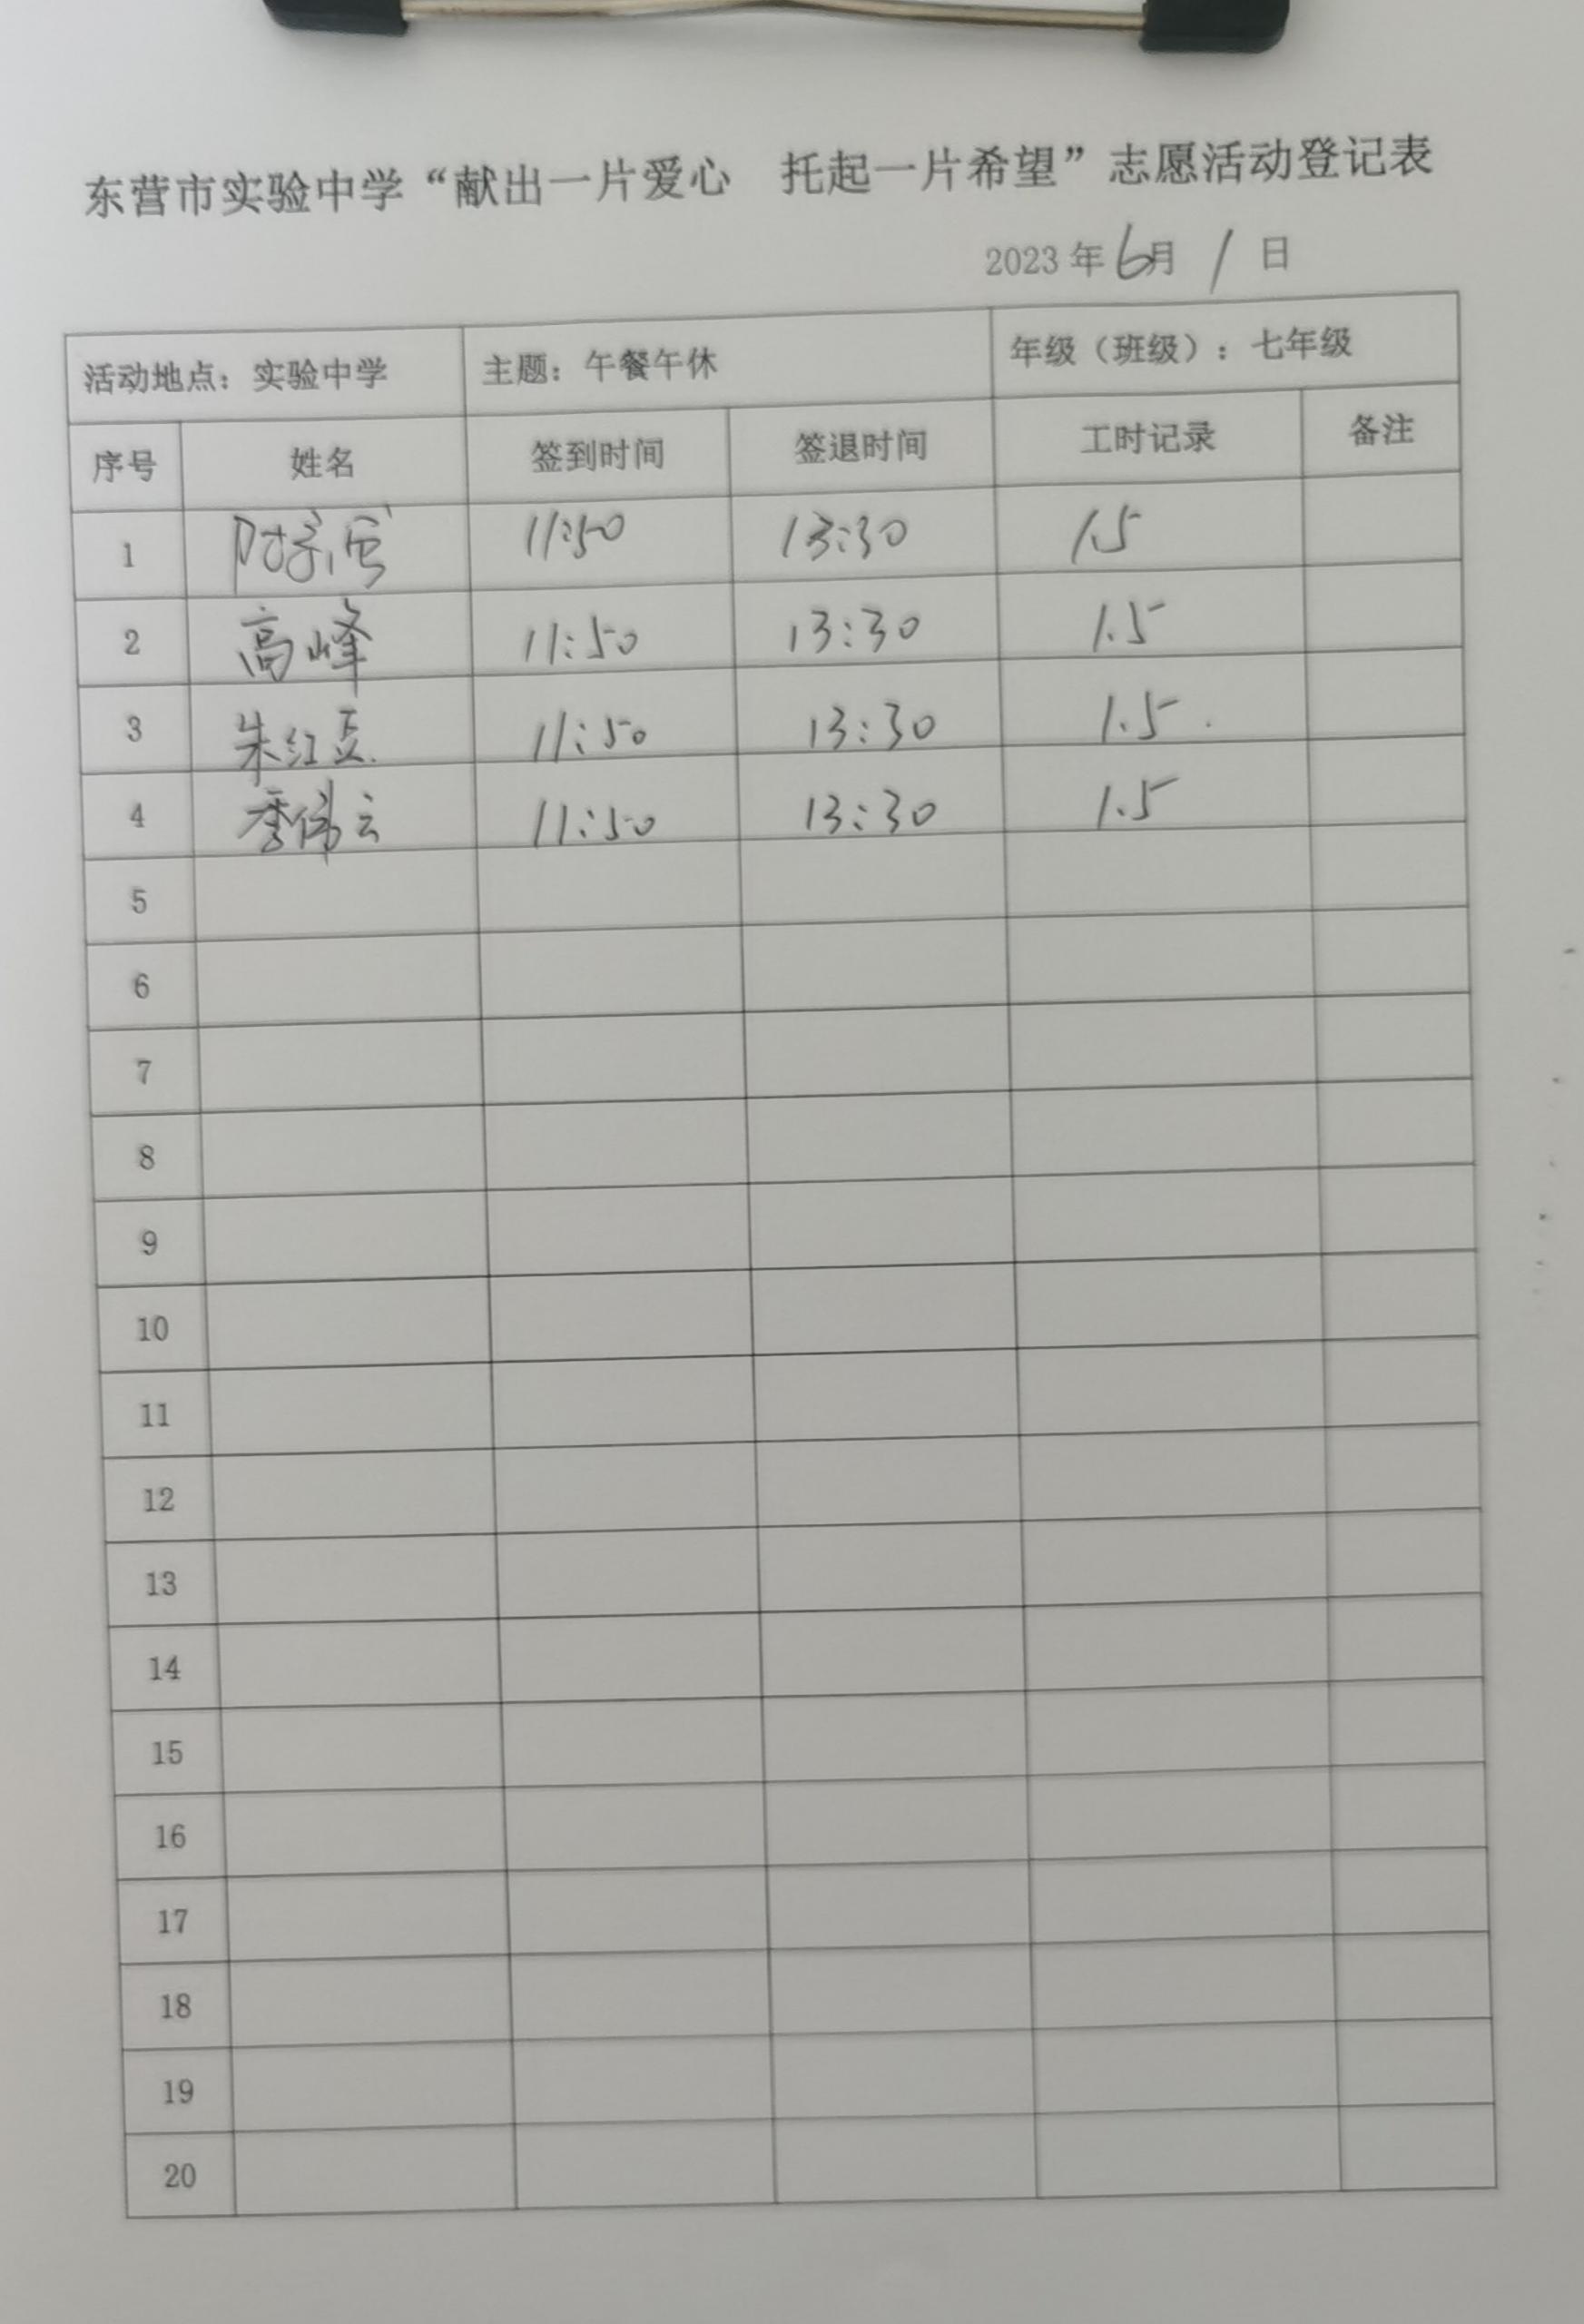 东营市实验中学“献出一片爱心 托起一片希望”志愿活动登记表
2023年6月1日
活动地点：实验中学 主题：午餐午休 年级（班级）：七年级
序号 姓名 签到时间 签退时间 工时记录 备注
1 11:50 13:30 1.5
2 高峰 11:50 13:30 1.5
3 朱红豆 11:50 13:30 1.5
4 季伟云 11:50 13:30 1.5
5
6
7
8
9
10
11
12
13
14
15
16
17
18
19
20